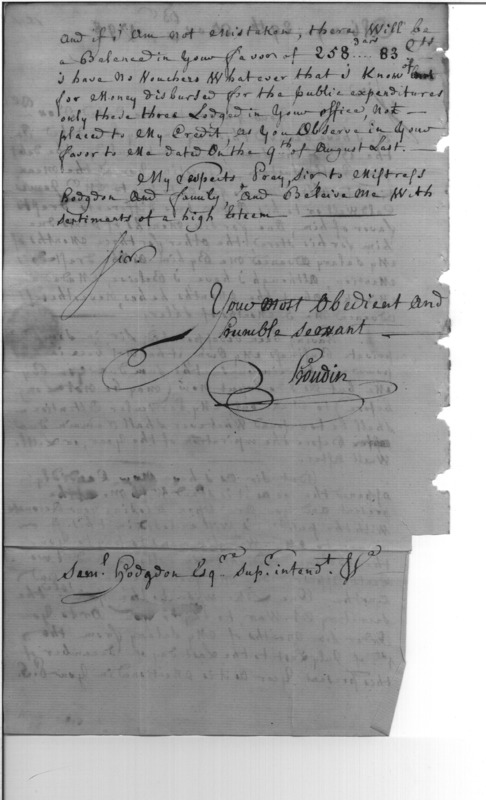 and if I Am not Mistaken, there Will be
a Balance in Your favor of 258 Dars .... 83 Cts
i have No Vouchers Whatever that i Know of
for Money disbursed for the public expenditures
only those three Lodged in Your office, Not
placed to My Credit, as You Observe in Your
favor to Me dated On the 9th of August Last. —
My Respects Pray, Sir to Mistress
Hodgdon And family And Belaive Me With
sentiments of a high Esteem
Sir,
Your Most Obedient And
Humble Servant
Houdin
Saml Hodgdon Esqre Supr intendt &ca